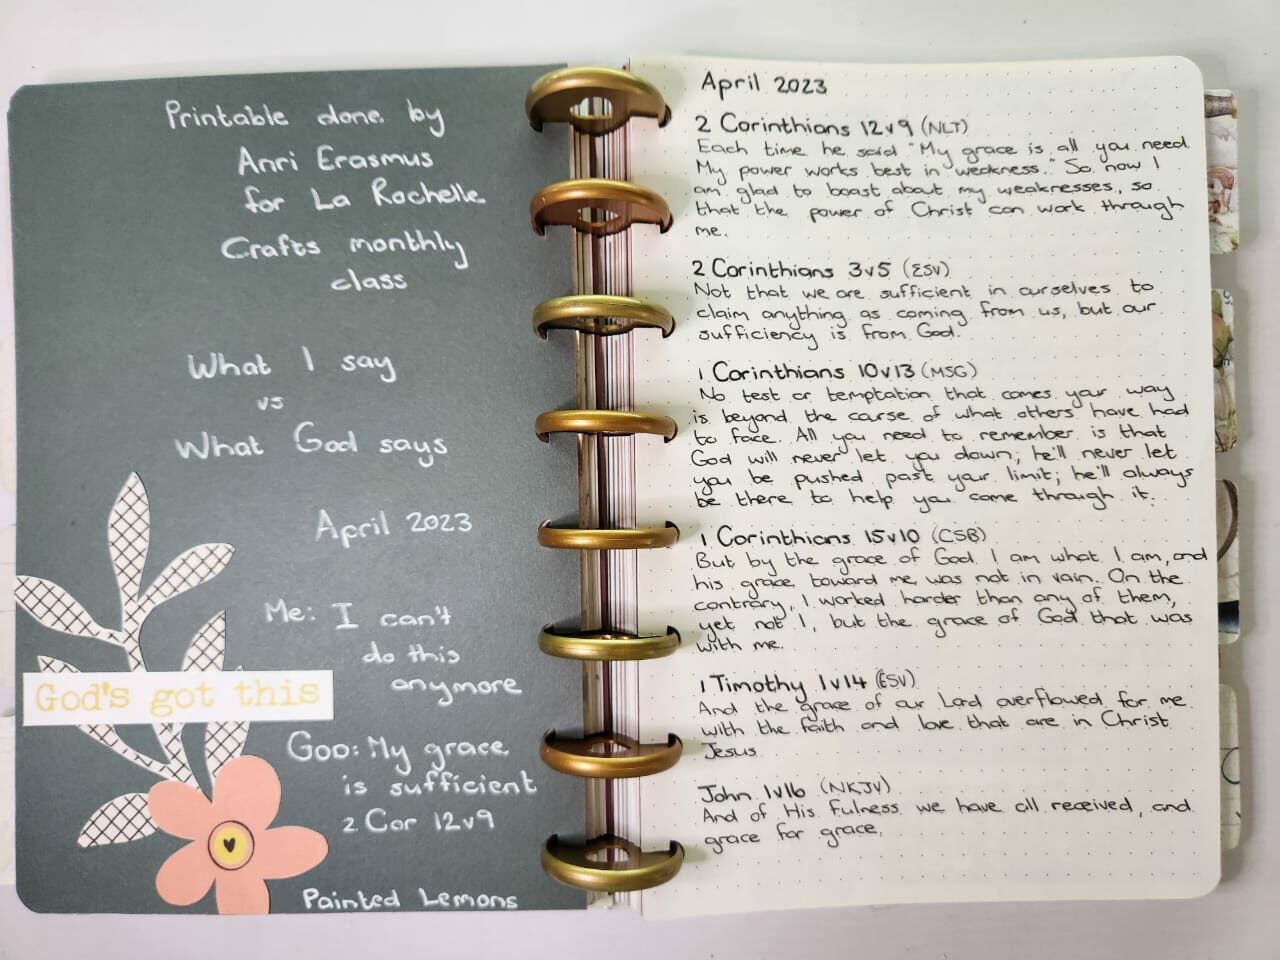 Printable done by
Anri Erasmus
for La Rochelle
Crafts monthly
class
What I say
vs
What God says
April 2023
Me: I can't
do this
anymore
God's got this
GOD: My grace
is sufficient
2 Cor 12v9
Painted Lemons
April 2023
2 Corinthians 12v9 (NLT)
Each time he said "My grace is all you need.
My power works best in weakness." So now I
am glad to boast about my weaknesses, so
that the power of Christ can work through
me.
2 Corinthians 3v5 (ESV)
Not that we are sufficient in ourselves to
claim anything as coming from us, but our
sufficiency is from God.
1 Corinthians 10v13 (MSG)
No test or temptation that comes your way
is beyond the course of what others have had
to face. All you need to remember is that
God will never let you down; he'll never let
you be pushed past your limit; he'll always
be there to help you come through it.
1 Corinthians 15v10 (CSB)
But by the grace of God I am what I am, and
his grace toward me was not in vain. On the
contrary, I worked harder than any of them,
yet not I, but the grace of God that was
with me.
1 Timothy 1v14 (ESV)
And the grace of our Lord overflowed for me
with the faith and love that are in Christ
Jesus
John 1v16 (NKJV)
And of His fulness we have all received, and
grace for grace.